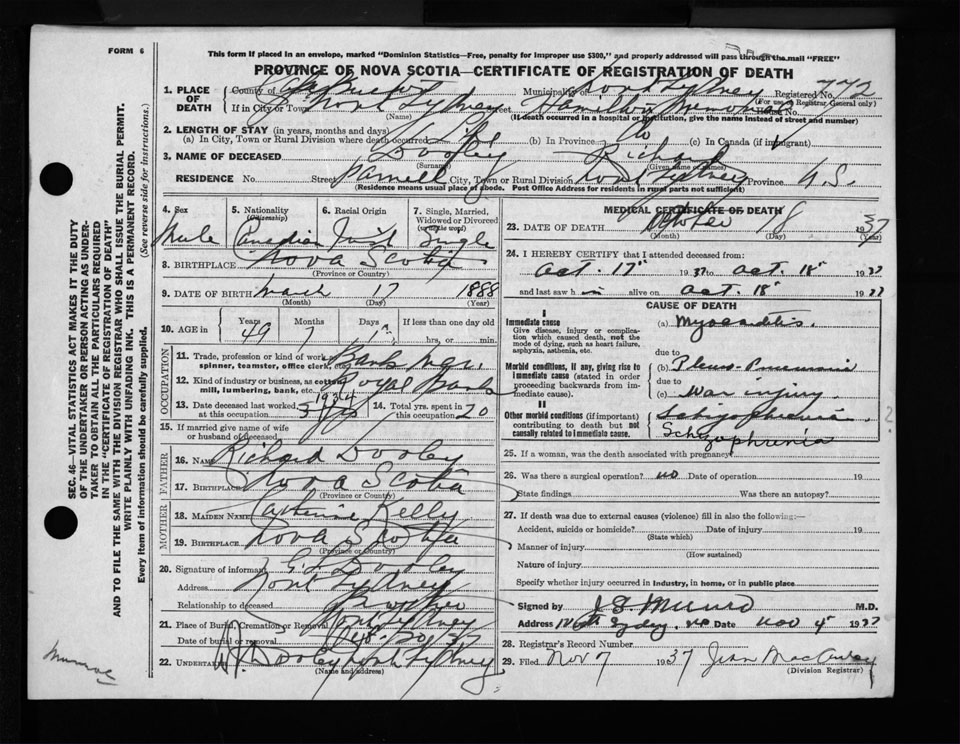 FORM 6
This form if placed in an envelope, marked "Dominion Statistics—Free, penalty for improper use $300," and properly addressed will pass through the mail "FREE"
PROVINCE OF NOVA SCOTIA—CERTIFICATE OF REGISTRATION OF DEATH
1. PLACE OF DEATH
County of Cape Breton Municipality of North Sydney Registered No. 772
(For use of Registrar General only)
If in City or Town North Sydney Street Hamilton Memorial House No.
(Name) (If death occurred in a hospital or institution, give the name instead of street and number)
2. LENGTH OF STAY (in years, months and days)
(a) In City, Town or Rural Division where death occurred Life (b) In Province do (c) In Canada (if immigrant)
3. NAME OF DECEASED Dooley Richard
(Given name or names)
RESIDENCE No. Street City, Town or Rural Division North Sydney Province N.S.
(Residence means usual place of abode. Post Office Address for residents in rural parts not sufficient)
4. Sex Male
5. Nationality (Citizenship) Canadian
6. Racial Origin Irish
7. Single, Married, Widowed or Divorced (write the word) Single
8. BIRTHPLACE Nova Scotia
(Province or Country)
9. DATE OF BIRTH March 17 1888
(Month) (Day) (Year)
10. AGE in Years 49 Months 7 Days If less than one day hrs. or min.
OCCUPATION
11. Trade, profession or kind of work as spinner, teamster, office clerk, etc. Bank Mgr.
12. Kind of industry or business, as cotton mill, lumbering, bank, etc. Royal Bank
13. Date deceased last worked at this occupation 1934
14. Total yrs. spent in this occupation 20
15. If married give name of wife or husband of deceased
FATHER
16. Name Richard Dooley
17. Birthplace Nova Scotia
(Province or Country)
MOTHER
18. Maiden Name Catherine Kelly
19. Birthplace Nova Scotia
(Province or Country)
20. Signature of informant Dooley
Address North Sydney
Relationship to deceased Brother
21. Place of Burial, Cremation or Removal North Sydney
Date of burial or removal Oct. 20/37
22. Undertaker Dooley North Sydney
(Name and address)
MEDICAL CERTIFICATE OF DEATH
23. DATE OF DEATH October 18 1937
(Month) (Day) (Year)
24. I HEREBY CERTIFY that I attended deceased from:
Oct. 17" 1937 to Oct. 18" 1937
and last saw him alive on Oct. 18" 1937
CAUSE OF DEATH
I
Immediate cause
Give disease, injury or complication which caused death, not the mode of dying, such as heart failure, asphyxia, asthenia, etc.
(a) Myocarditis.
due to
Morbid conditions, if any, giving rise to immediate cause (stated in order proceeding backwards from immediate cause).
(b) Pleuro-Pneumonia
due to
(c) War injury.
II
Other morbid conditions (if important) contributing to death but not causally related to immediate cause.
Schizophrenia
Schizophrenia
?
25. If a woman, was the death associated with pregnancy?
26. Was there a surgical operation? no Date of operation 19
State findings Was there an autopsy?
27. If death was due to external causes (violence) fill in also the following:—
Accident, suicide or homicide? Date of injury 19
(State which)
Manner of injury
(How sustained)
Nature of injury
Specify whether injury occurred in industry, in home, or in public place
Signed by J. G. Munro M.D.
Address North Sydney. NS Date Nov 4 1937
28. Registrar's Record Number
29. Filed Nov 7 1937
(Division Registrar)
SEC. 46—VITAL STATISTICS ACT MAKES IT THE DUTY OF THE UNDERTAKER OR PERSON ACTING AS UNDERTAKER TO OBTAIN ALL THE PARTICULARS REQUIRED IN THE "CERTIFICATE OF REGISTRATION OF DEATH" AND TO FILE THE SAME WITH THE DIVISION REGISTRAR WHO SHALL ISSUE THE BURIAL PERMIT.
WRITE PLAINLY WITH UNFADING INK. THIS IS A PERMANENT RECORD.
Every item of information should be carefully supplied. (See reverse side for instructions.)